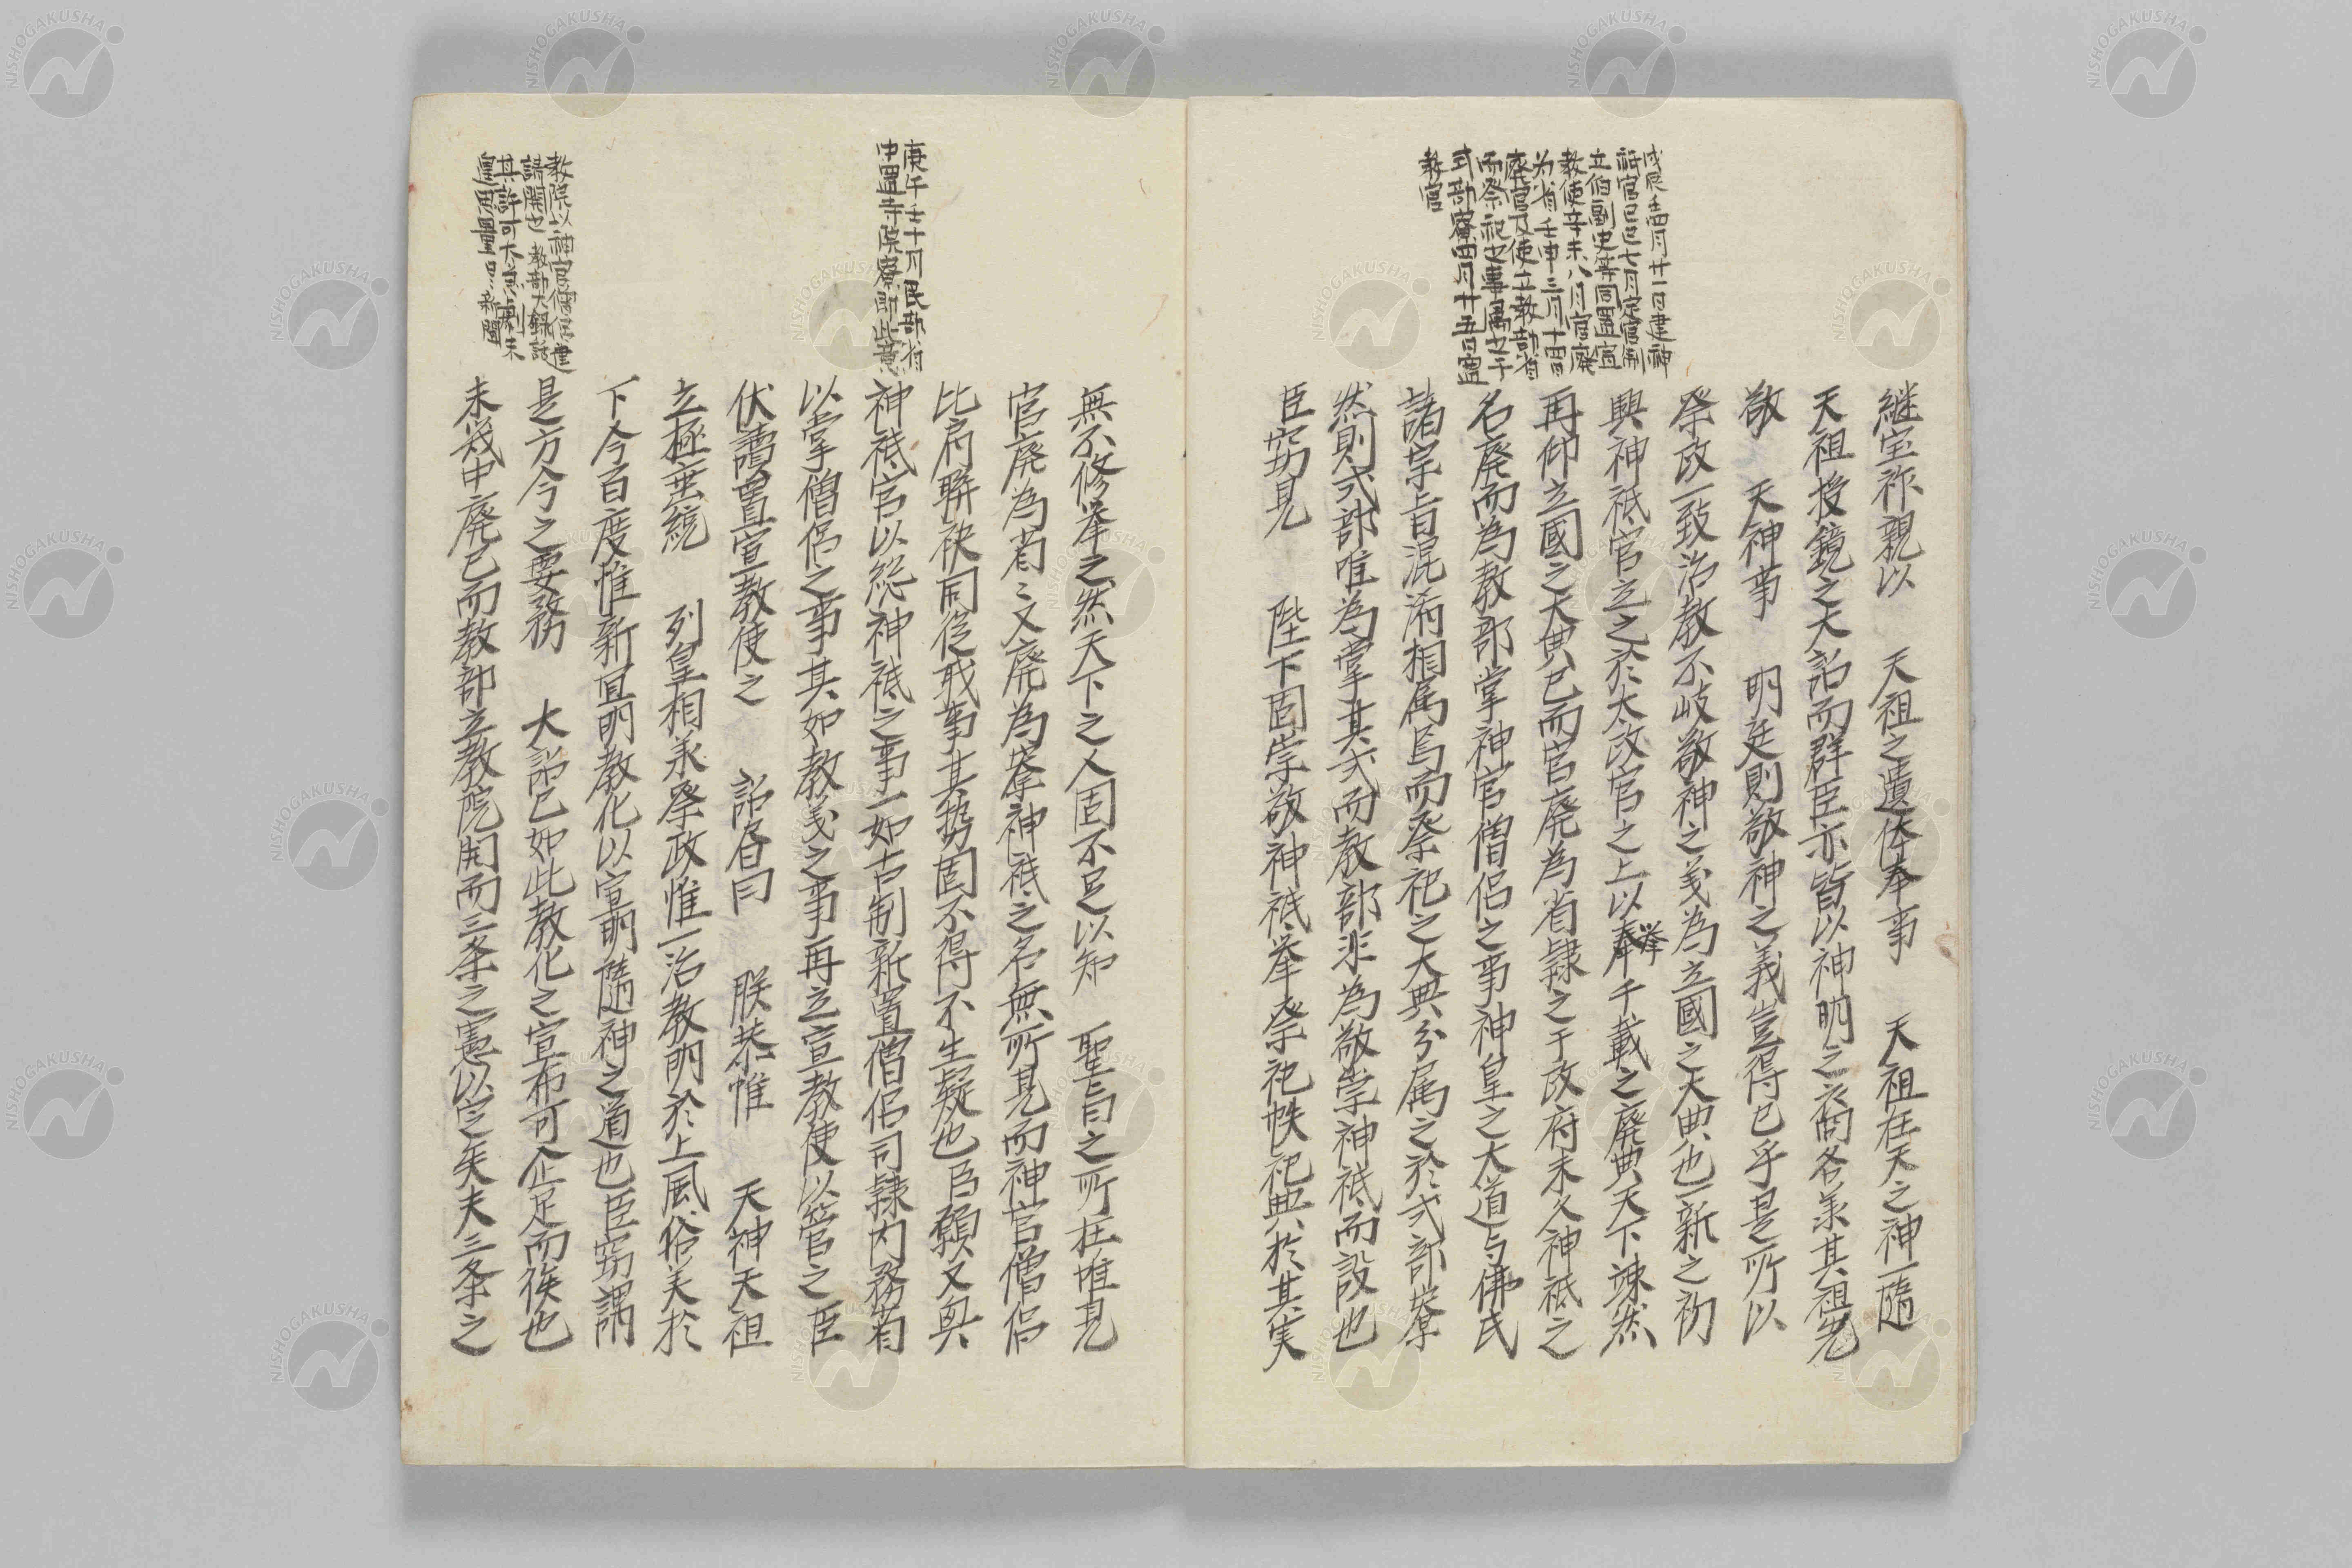 戊辰壬四月廿一日建神
祇官己巳七月定官制
立伯副史等同置宣
教使辛未八月官廃
为省壬申三月十四日
廃官及使立教部省
而祭祀之事属之于
式部寮四月廿五日置
教官
継宝祚親以　天祖之遺体奉事　天祖在天之神一随
天祖授鏡之大詔而群臣亦皆以神明之裔各承其祖先
敬　天神事　明廷則敬神之義豈得已乎是所以
祭政一致治教不岐敬神之義為立國之大典也一新之初
興神祇官立之於太政官之上以奉挙千載之廃典天下竦然
再仰立國之大典已而官廃為省隷之于政府未久神祇之
名廃而為教部掌神官僧侶之事神皇之大道与佛氏
諸宗旨混淆相属焉而祭祀之大典分属之於式部寮
然則式部唯為掌其式而教部非為敬崇神祇而設也
臣窃見　陛下固崇敬神祇挙祭祀帙祀典於其実
庚午壬十月民部省
中置寺院寮即此意
無不修挙之然天下之人固不足以知　聖旨之所在惟見
官廃為省〻又廃為寮神祇之名無所見而神官僧侶
比肩聯袂同従戝事其勢固不得不生疑也臣願又興
神祇官以総神祇之事一如古制新置僧侶司隷内務省
以掌僧侶之事其如教義之事再立宣教使以管之臣
伏讀置宣教使之　詔有曰　朕恭惟　天神天祖
立極垂統　列皇相承祭政惟一治教明於上風俗美於
下今百度惟新宜明教化以宣明隨神之道也臣窃謂
是方今之要務　大詔已如此教化之宣布可企足而俟也
未幾中廃已而教部立教院開而三条之憲以定矣夫三条之
教院以神官僧侶建
請開也　教部大録誌
其許可大急劇未
皇思量　日〻新聞